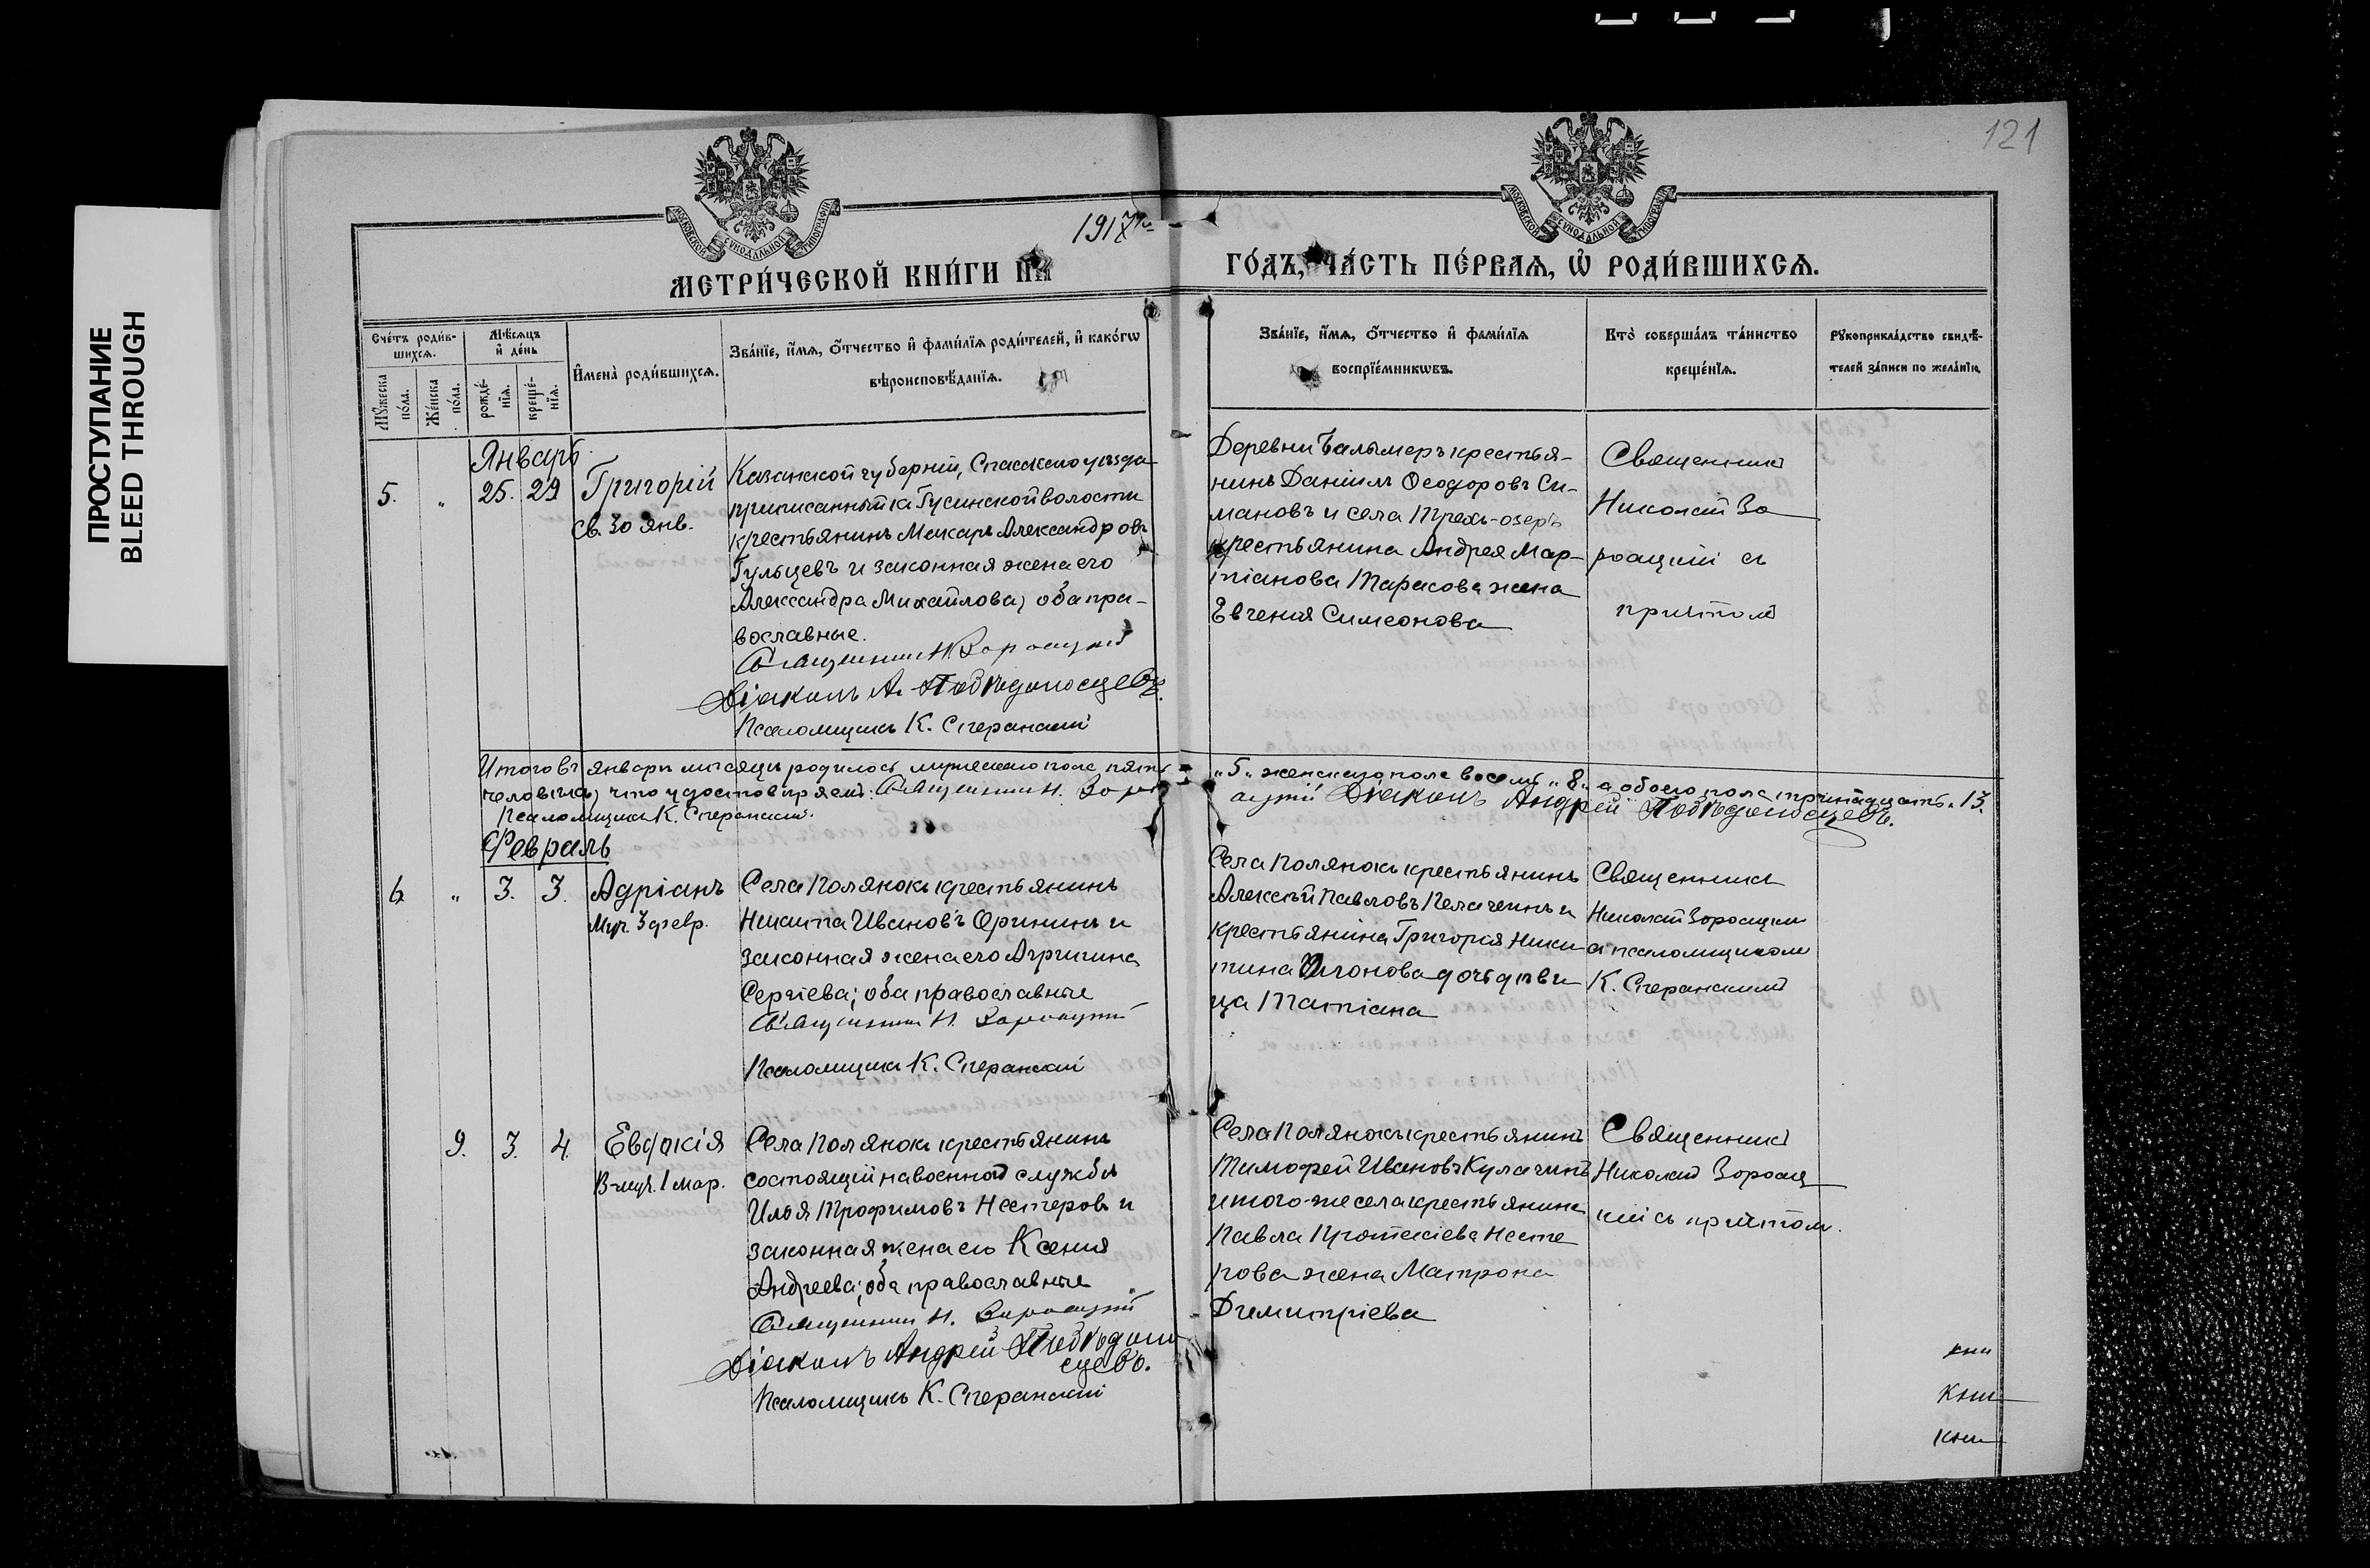 ПРОСТУПАНИЕ
BLEED THROUGH
121
МОСКОВСКОЙ СѴНОДАЛЬНОЙ ТИПОГРАФІИ
МОСКОВСКОЙ СѴНОДАЛЬНОЙ ТИПОГРАФІИ
1917 го
МЕТРИ́ЧЕСКОЙ КНИ́ГИ НА
ГО́ДЪ, ЧА́СТЬ ПЕ́РВАЯ, Ѡ҆ РОДИ́ВШИХСЯ.
Сче́тъ роди́в-
шихся.
Мꙋ́жеска
по́ла.
Же́нска
по́ла.
Мѣ́сяцъ
и҆ де́нь
рожде́-
нїя.
креще́-
нїя.
И҆мена̀ роди́вшихся.
Зва́нїе, и҆́мя, ѻ҆́тчество и҆ фами́лїя роди́телей, и҆ како́гѡ
вѣроисповѣ́данїя.
Зва́нїе, и҆́мя, ѻ҆́тчество и҆ фами́лїя
воспрїе́мникѡвъ.
Кто̀ соверша́лъ та́инство
креще́нїя.
Рꙋкоприкла́дство свидѣ́-
телей за́писи по жела́нїю.
Январь
5. " 25. 29
Григорій
св. 30 янв.
Казанской губерніи, Спасскаго уѣзда
приписанный къ Гусинской волости
крестьянинъ Макаръ Александровъ
Гульцевъ и законная жена его
Александра Михайлова, оба пра-
вославные.
Священникъ Н. Зороацкій
Діаконъ А. Побѣдоносцевъ.
Псаломщикъ К. Сперанскій
Деревни Балымеръ крестья-
нинъ Даніилъ Ѳеодоровъ Си-
мановъ и села Трехъ-озеръ
крестьянина Андрея Мар-
тіанова Тарасова жена
Евгенія Симеонова
Священникъ
Николай Зо
роацкій съ
причтомъ
Итого въ январѣ мѣсяцѣ родилось мужескаго пола пять "5" женскаго пола восемь "8" а обоего пола тринадцать "13."
человѣкъ, что удостовѣряемъ: Священникъ Н. Зороацкій Діаконъ Андрей Побѣдоносцевъ.
Псаломщикъ К. Сперанскій.
Февраль
6 " 3. 3.
Адріанъ
Муч. 3 февр.
Села Полянокъ крестьянинъ
Никита Ивановъ Оринин и
законная жена его Агрипина
Сергіева; оба православные
Священникъ Н. Зороацкій
Псаломщикъ К. Сперанскій
Села Полянокъ крестьянинъ
Алексѣй Павловъ и
крестьянина Григорія Ники
тина дочь дѣви
ца Татіана
Священникъ
Николай Зороацкій
съ псаломщикомъ
К. Сперанскимъ
9. 3. 4.
Евдокія
В-муч. 1 мар.
Села Полянокъ крестьянинъ
состоящій на военной службѣ
Илья Трофимовъ Нестеровъ и
законная жена его Ксенія
Андреева; оба православные
Священникъ Н. Зороацкій
Діаконъ Андрей Побѣдоно
сцевъ.
Псаломщикъ К. Сперанскій
Села Полянокъ крестьянинъ
Тимофей Ивановъ Кулагинъ
и того-же села крестьянина
Павла Протасіева Несте
рова жена Матрона
Димитріева
Священникъ
Николай Зороац
кій съ причтомъ.
кни
кни
кни